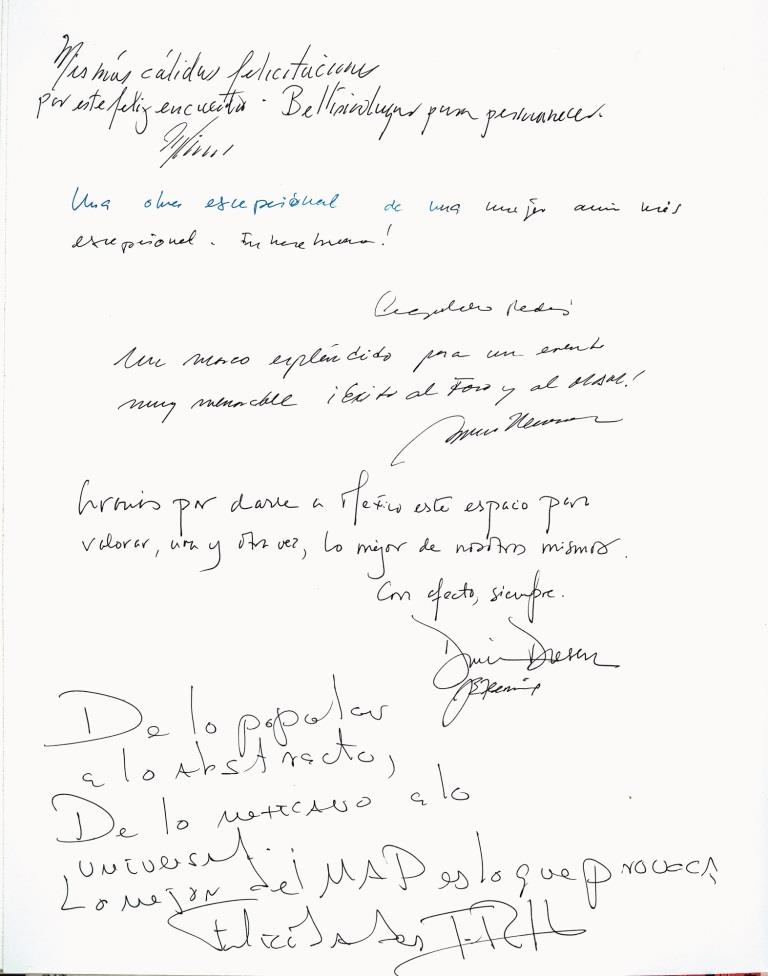 Mis más cálidas felicitaciones
por este feliz encuentro. Bellísimo lugar para permanecer.
Una obra escepsional de una mujer aún más
escepsional. Enhorabuena!
Un marco espléndido para un evento
muy memorable ¡Éxito al Foro y al
Gracias por darle a México este espacio para
valorar, una y otra vez, lo mejor de nosotros mismos.
Con afecto, siempre.
De lo popular
a lo abstracto,
De lo mexicano a lo
universal...
Lo mejor del MAP es lo que provoca
Felicidades